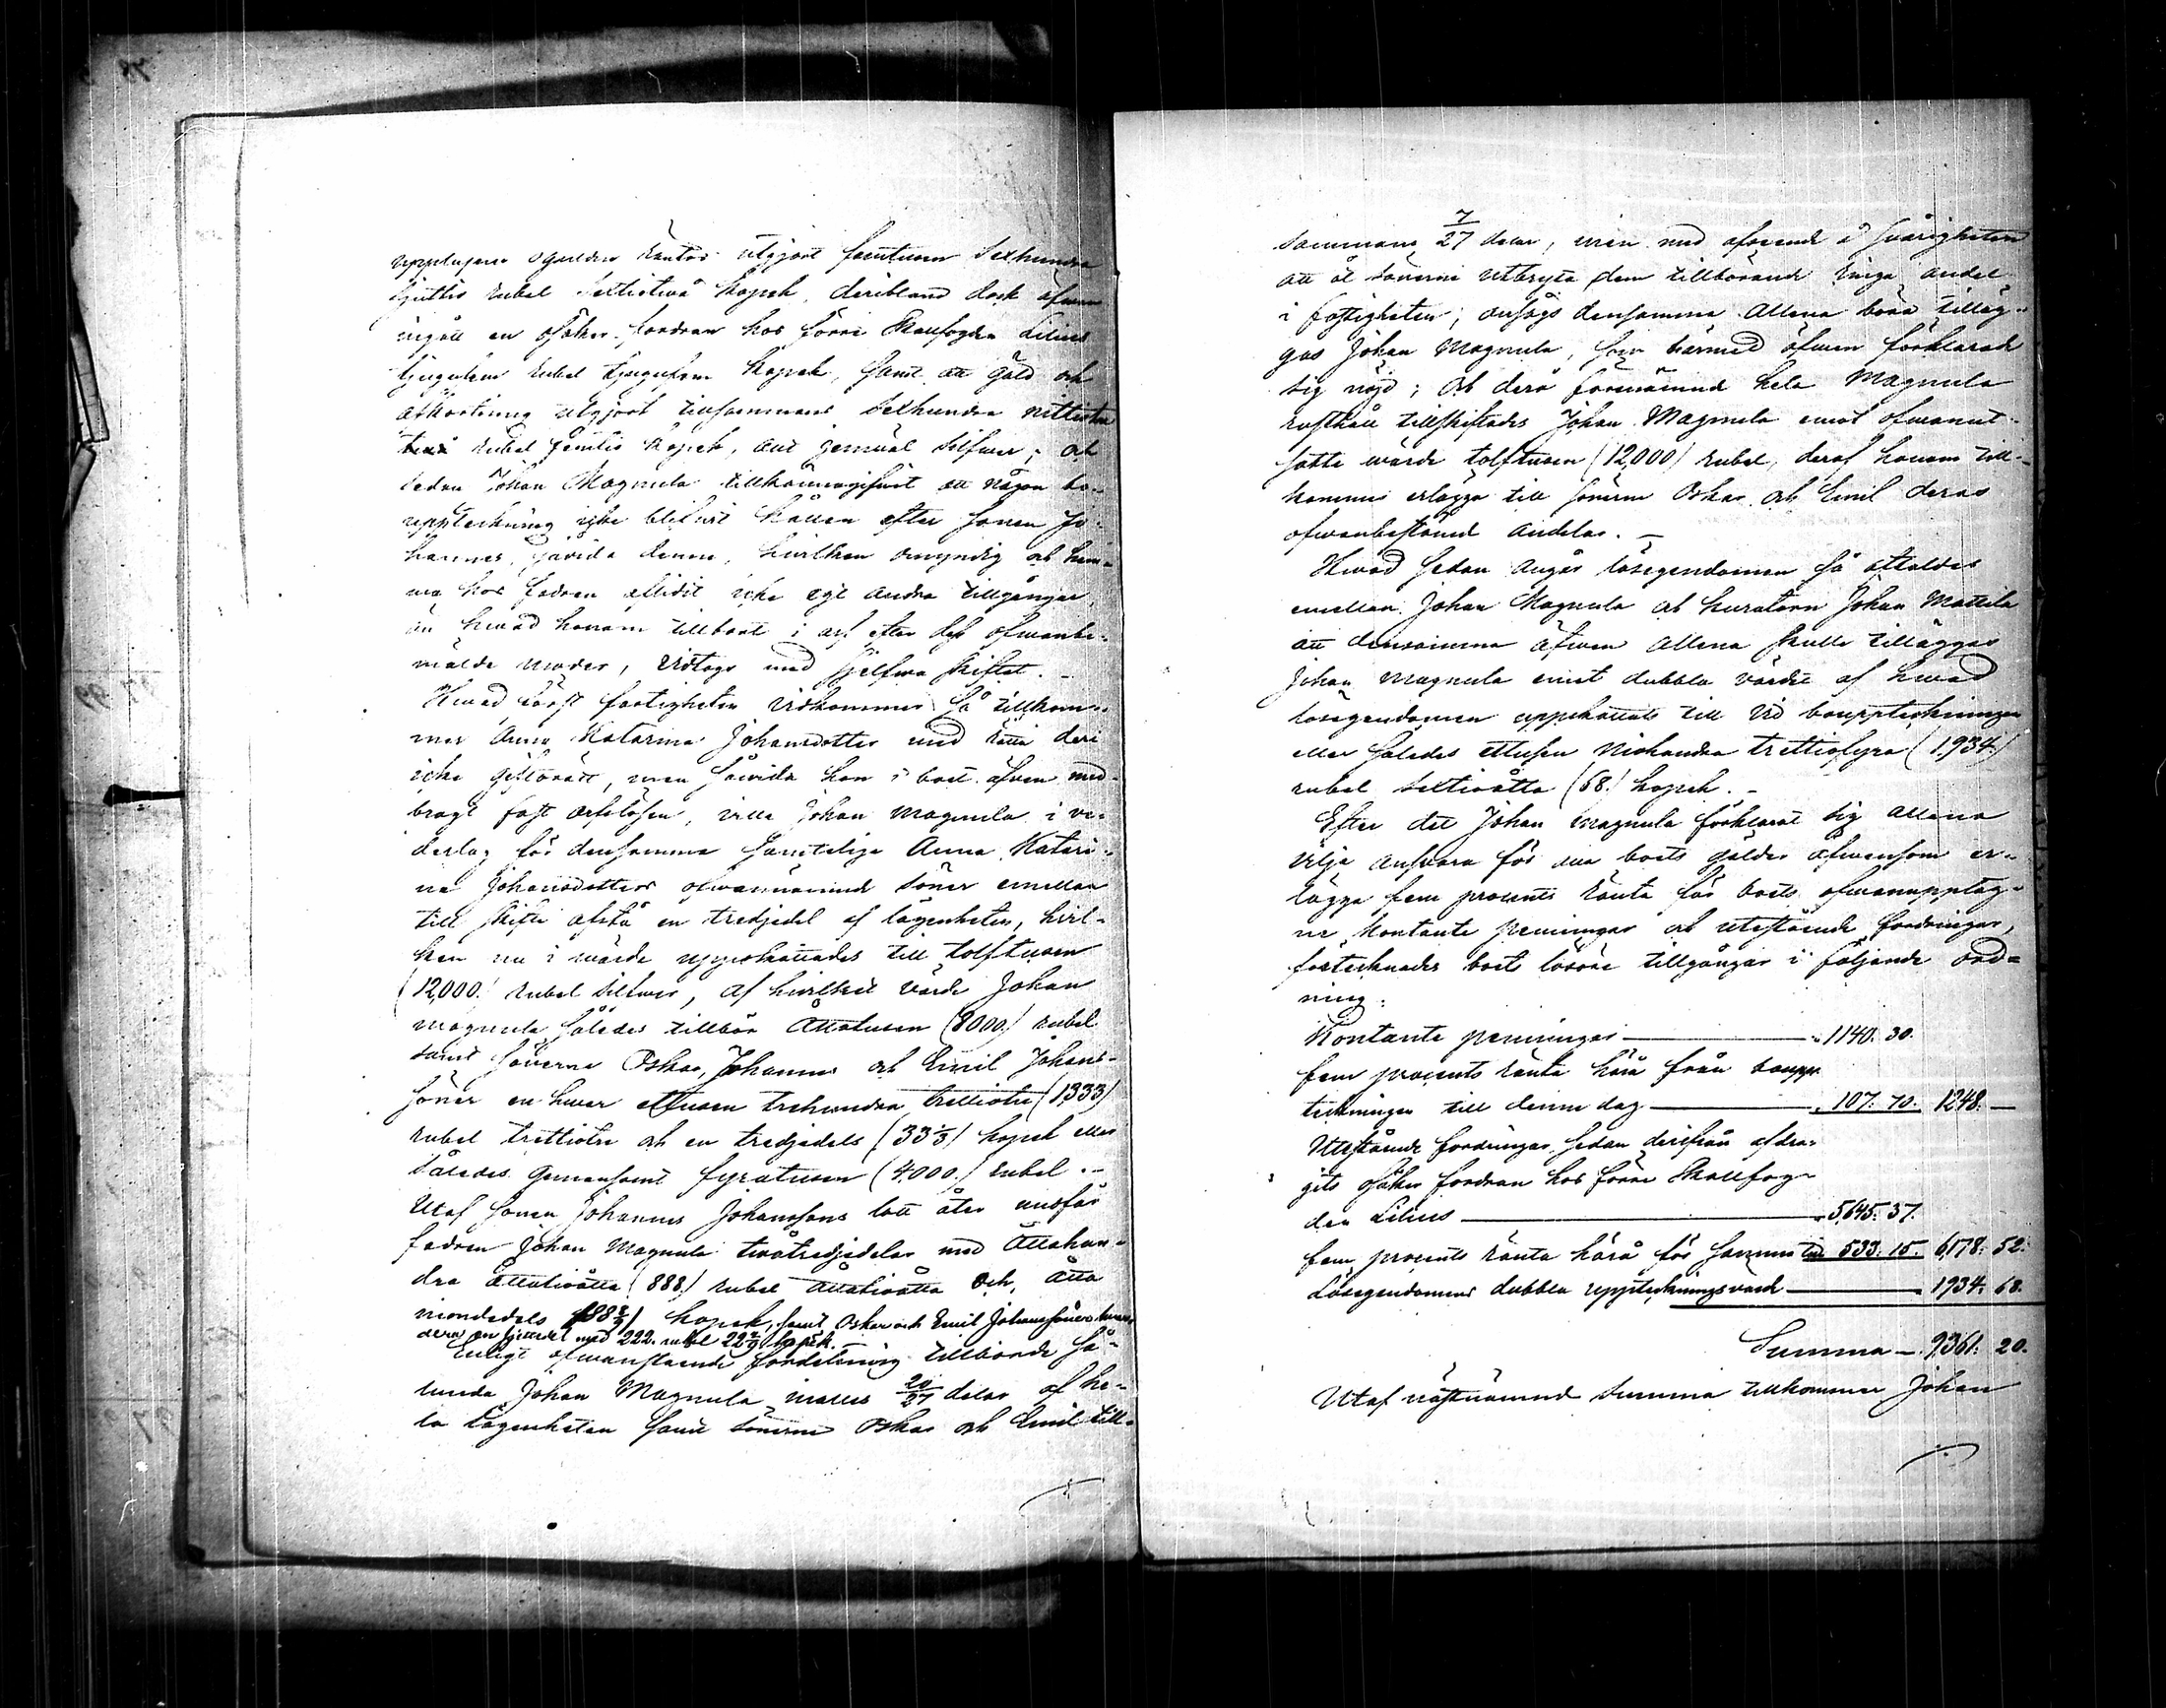 räntor utgjort femtusen Sexhundra
sjuttio rubel Sextiotvå kopek, deribland dock äfven
ingått en osäker fordran hos förre Skallfogden Lilius
tjugufem rubel tjugufem kopek, samt att gäld och
afkortning utgjort tillsammans Sexhundra nittio
rubel femtio kopek, allt jemväl Silfver; och
sedan Johan Magnula tillkännagifvit att någon bo-
uppteckning icke blifvit hållen efter sonen Jo-
hannes, såvida denne, hvilken omyndig och hem-
ma hos fadren aflidit icke egt andra tillgångar
än hvad honom tillkom i arf efter dess ofvanbe-
mälde moder, vidtogs med sjelfva skiftet. –
Hvad först fastigheten vidkommer så tillkom-
mer Anna Katarina Johansdotter med rätta deri
icke giftorätt, men såvida hon i boet äfven med-
bragt fast arfslösen, ville Johan Magnula i ve-
derlag för densamma samtelige Anna Katari-
na Johansdotters ofvannämnd söner emellan
till skifte afstå en tredjedel af lägenheten, hvil-
ken nu i värde uppskattades till tolftusen
(12,000.) rubel silfver, af hvilket värde Johan
Magnula således tillkom Åttatusen (8000.) rubel
samt sönerne Oskar, Johannes och Emil Johans-
söner en hvar ettusen trehundra trettiotre (1,333)
rubel trettiotre och en tredjedels (33 1/3) kopek eller
således gemensamt fyratusen (4,000.) rubel. –
Utaf sonen Johannes Johanssons lott åter undfår
fadren Johan Magnula tvåtredjedelar med Åttahun-
dra åttatioåtta (888.) rubel åttatioåtta och åtta
niondedels (88 8/9) kopek, samt Oskar och Emil Johanssöner hvar-
dera en sjettedel med 222. rubel 22 2/9 kopek. –
Enligt ofvanstående fördelning tillkomde så-
lunda Johan Magnula inalles 20/27 delar af he-
la lägenheten samt sönerne Oskar och Emil till-
sammans 7/27 delar, men med afseende å svårigheten
att åt sönerne utbryta dem tillkommande ringa andel
i fastigheten, ansågs densamma Allena böra tilläg-
gas Johan Magnula, som härmed äfven förklarade
sig nöjd; och derå förenämnd hela Magnula
rusthåll tillskiftades Johan Magnula emot ofvanut-
satte värde tolftusen (12,000) rubel, deraf honom till-
kommer erlägga till sönerne Oskar och Emil deras
ofvanbestämd andelar. –
Hvad sedan angår lösegendomen så aftaldes
emellan Johan Magnula och kuratorn Johan Mattila
att densamma äfven allena skulle tilläggas
Johan Magnula emot dubbla värdet af hvad
lösegendomen uppskattats till vid bouppteckningen
eller således ettusen niohundra trettiofyra (1,934.)
rubel sextioåtta (68.) kopek. –
Efter det Johan Magnula förklarat sig allena
vilja ansvara för alla boets gälder äfvensom er-
lägga fem procents ränta för boets ofvanupptag-
ne kontanta penningar och utestående fordringar,
förtecknades boets lösöre tillgångar i följande ord-
ning:
Kontante penningar — 1140. 30.
fem procents ränta härå från boupp-
teckningen till denne dag — 107. 70. 1248. —
Utestående fordringar, sedan derifrån afdra-
gits osäker fordran hos förre Skallfog-
den Lilius — 5,645. 37.
fem procents ränta härå för samma tid 533. 15. 6,178. 52.
Lösegendomens dubbla uppteckningsvärde — 1,934. 68.
Summa — 9,361. 20.
Utaf nästnämnd Summa tillkommer Johan